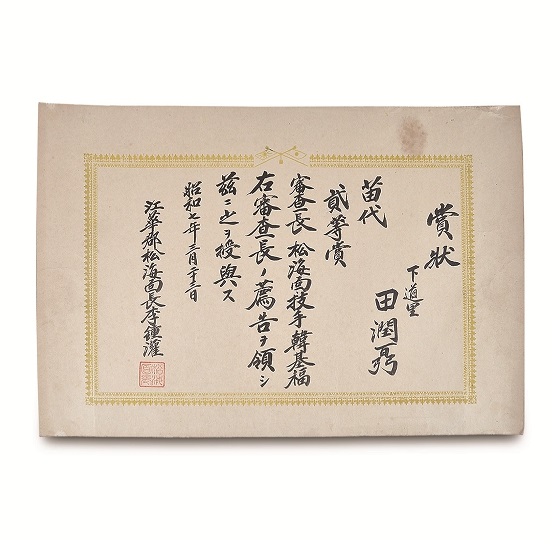 賞狀
下道里
田潤
苗代
貳等賞
審查長 松海面技手 韓基福
右審查長ノ薦告ヲ領シ
玆ニ之ヲ授與ス
昭和七年三月二十三日
江華郡松海面長李鍾灌